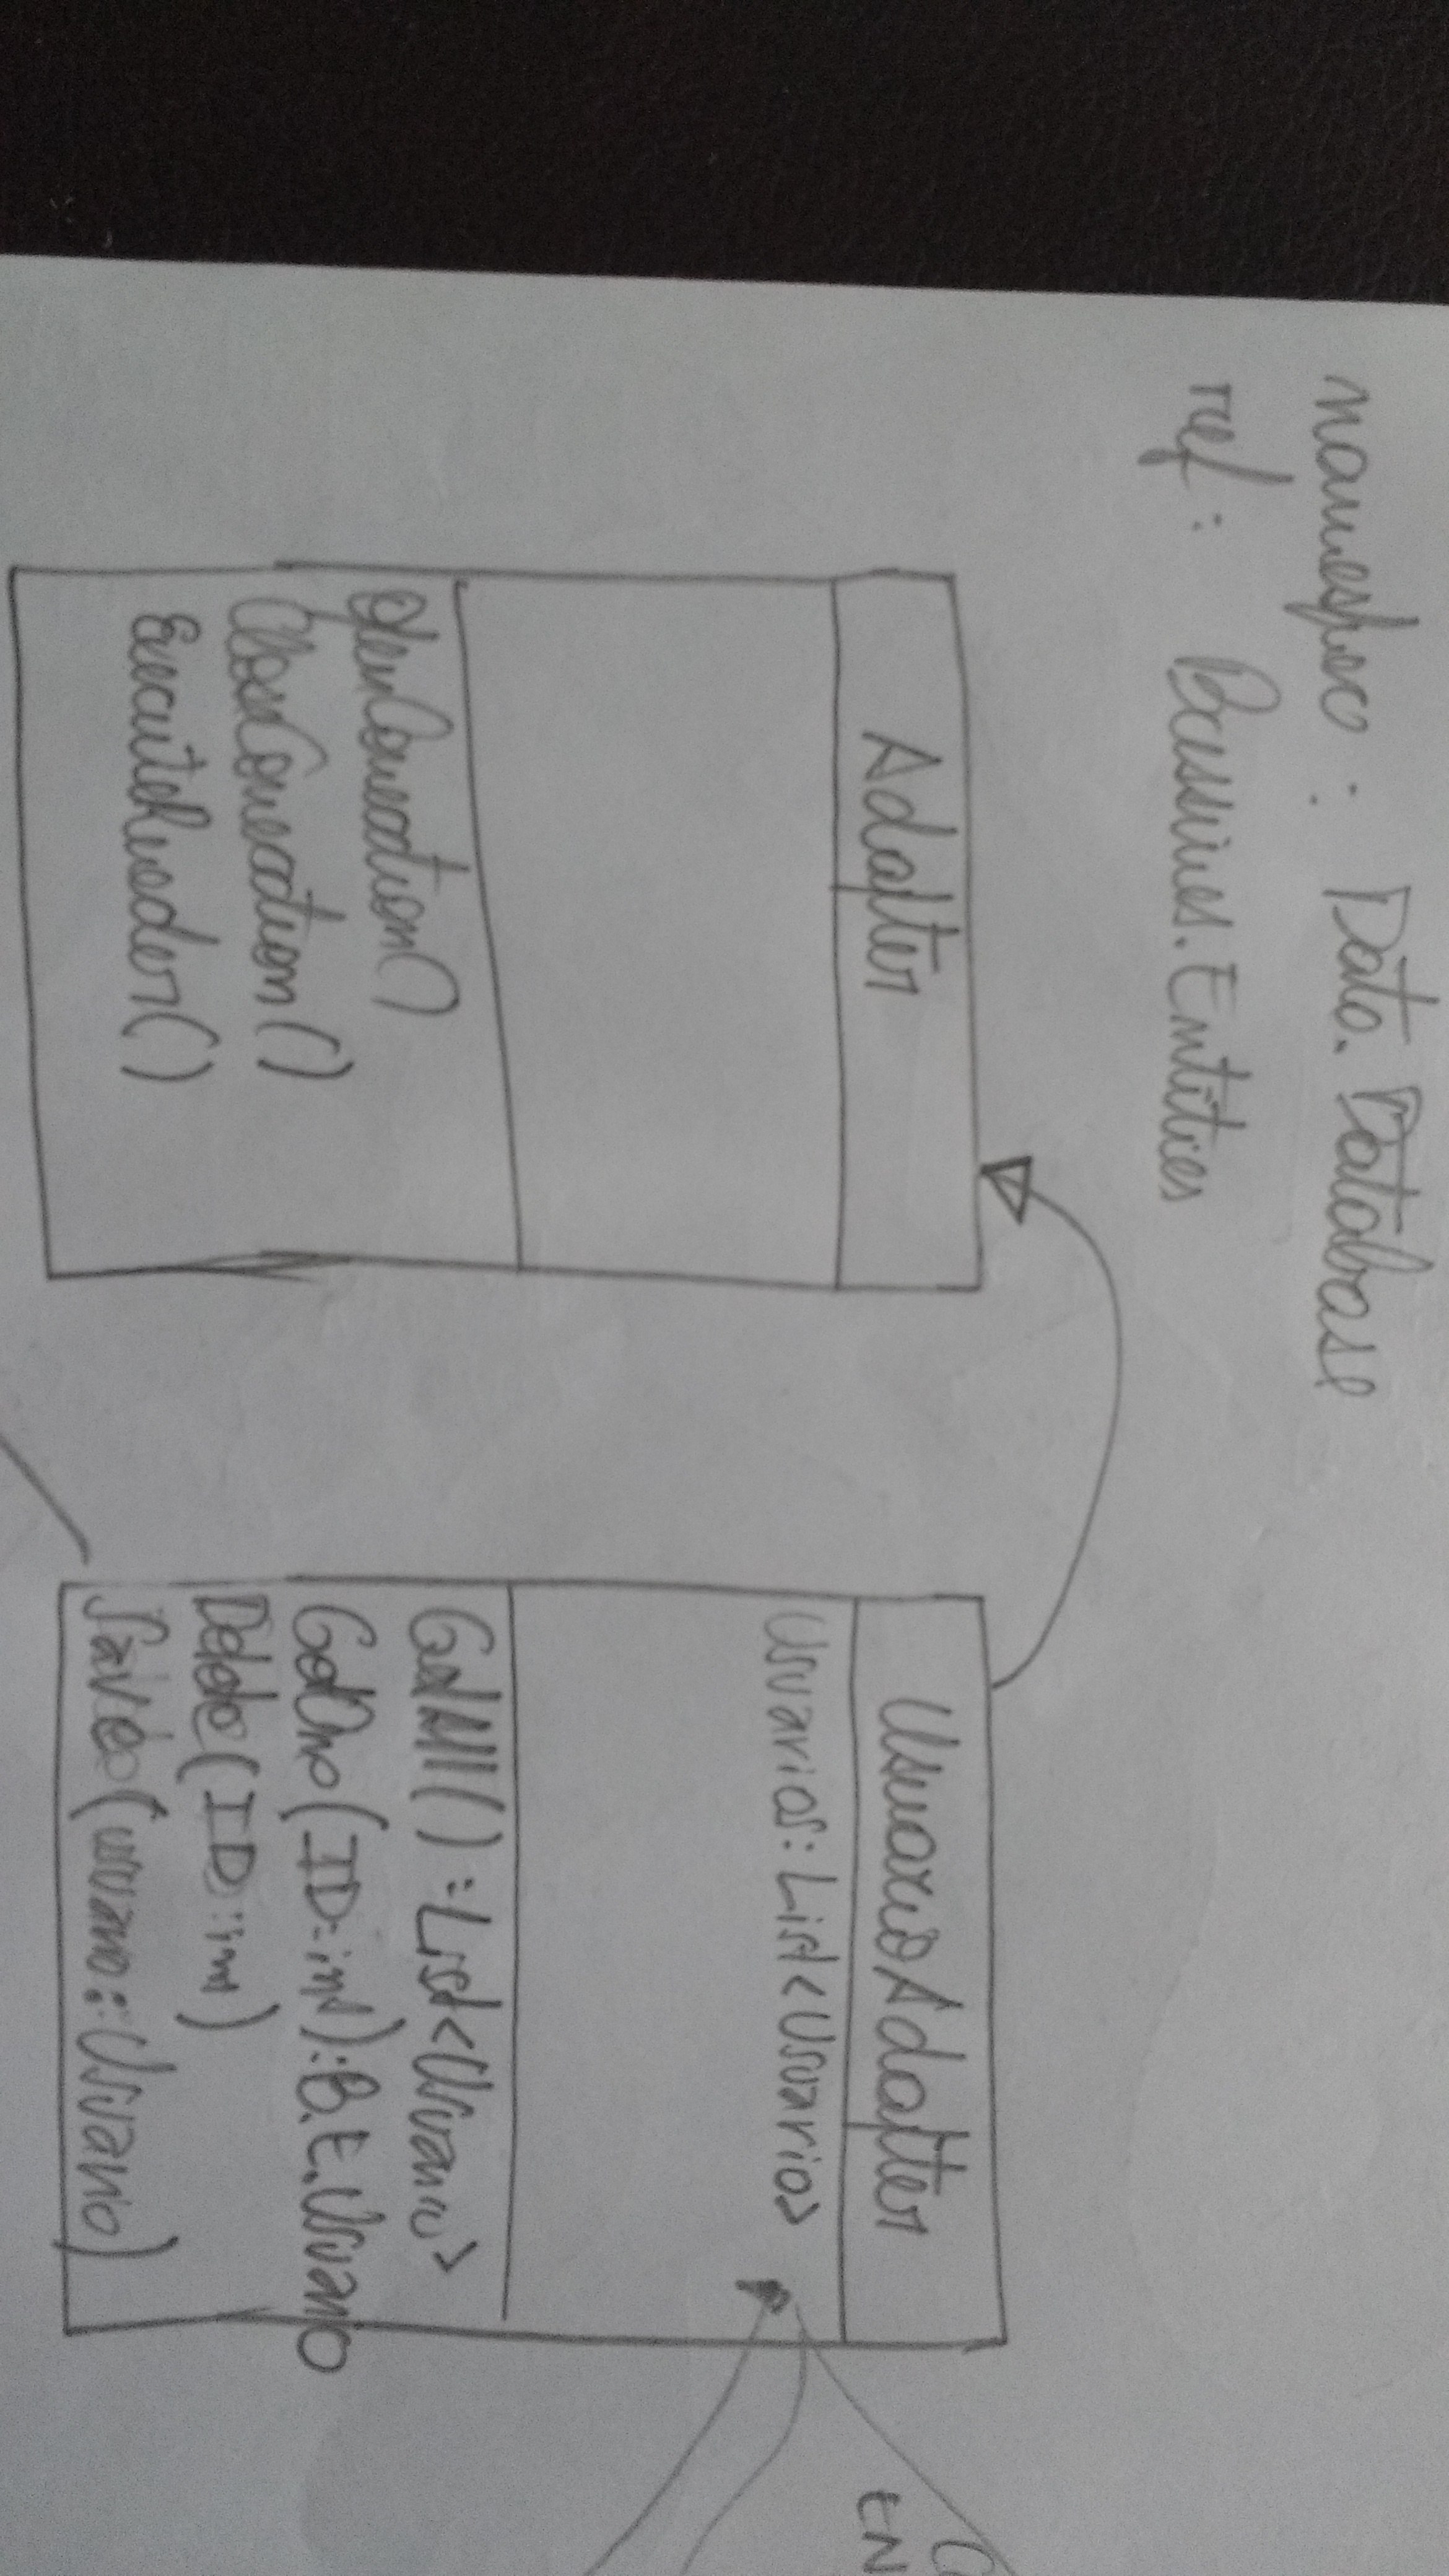 namespace : Data.Database
ref : Bussines.Entities
Adapter
OpenConecction()
CloseConecction()
ExecuteReader()
UsuarioAdapter
Usuarios: List<Usuario>
GetAll() : List<Usuario>
GetOne(ID:int):B.E.Usuario
Delete(ID:int)
Save(usuario:Usuario)
EN